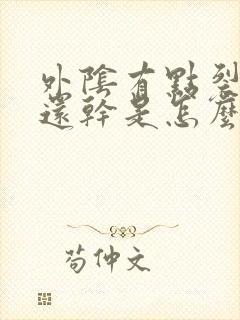 外陰有點裂
還幹是怎麼
苟仲文